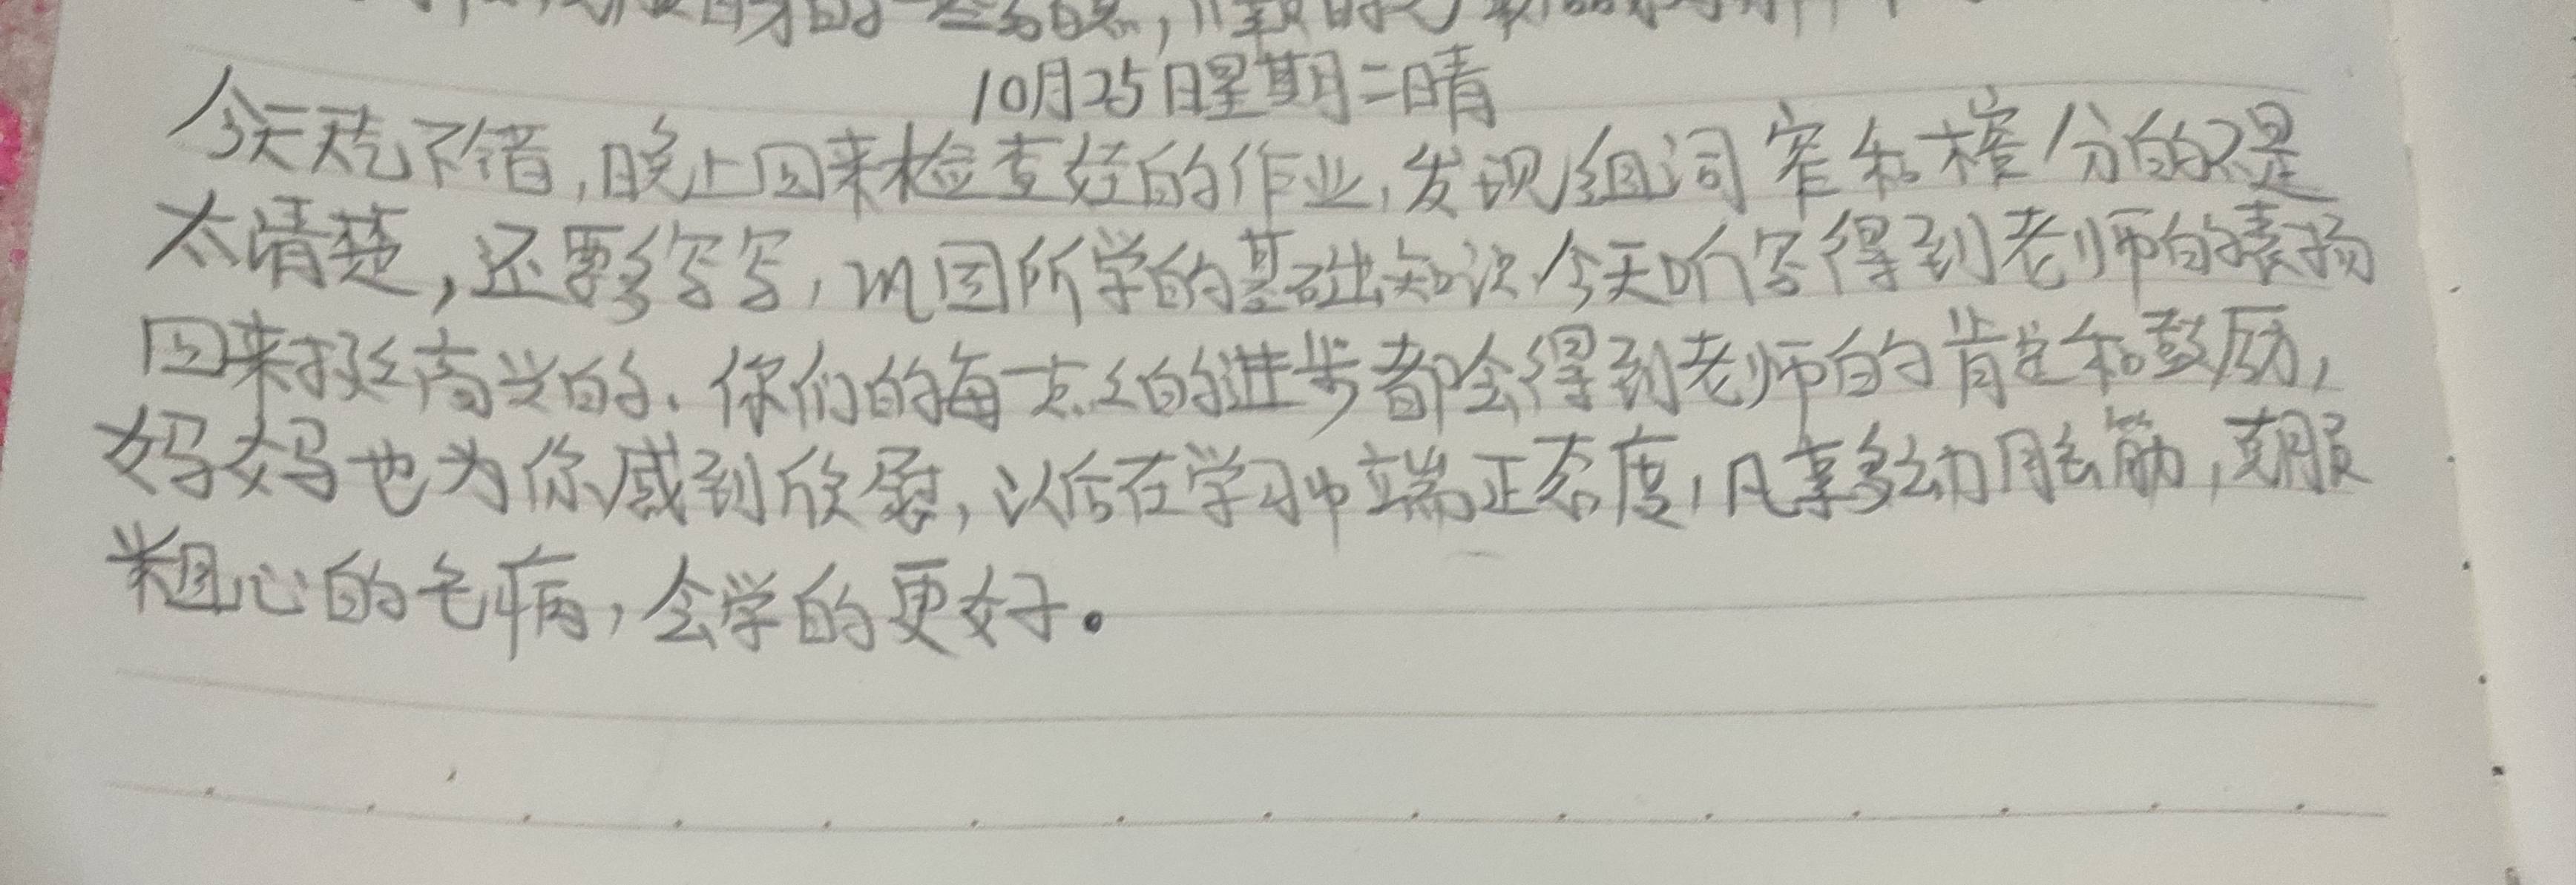 10月25日星期二晴
今天还不错,晚上回来检查好的作业,发现组词窄和榨分的不是
太清楚,还要多写写,巩固所学的基础知识今天听写得到老师的表扬
回来挺高兴的.你们的每一点的进步都会得到老师的肯定和鼓励,
妈妈也为你感到欣慰,以后在学习中端正态度,凡事多动脑筋,克服
粗心的毛病,会学的更好。